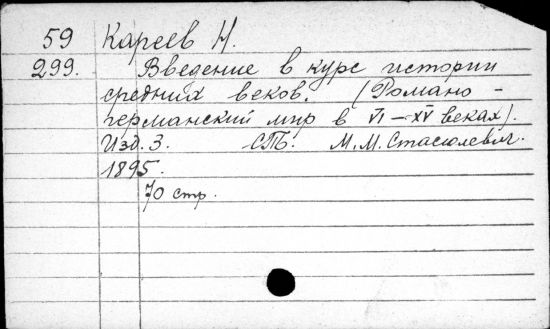 59 Кареев Н.
299. Введение в курс истории
средних веков. (Романо-
германский мир в VI–XV веках).
Изд. 3. СПБ. М.М. Стасюлевич.
1895.
70 стр.